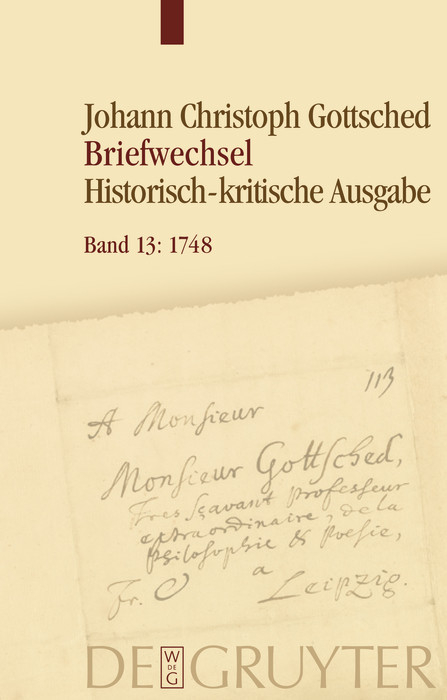 Johann Christoph Gottsched
Briefwechsel
Historisch-kritische Ausgabe
Band 13: 1748
113
A Monsieur
Monsieur Gottsched,
Tres Sçavant Professeur
extraordinaire, de la
Philosophie & Poesie,
a
Fr. Leipzig.
DE GRUYTER
W
DE
G